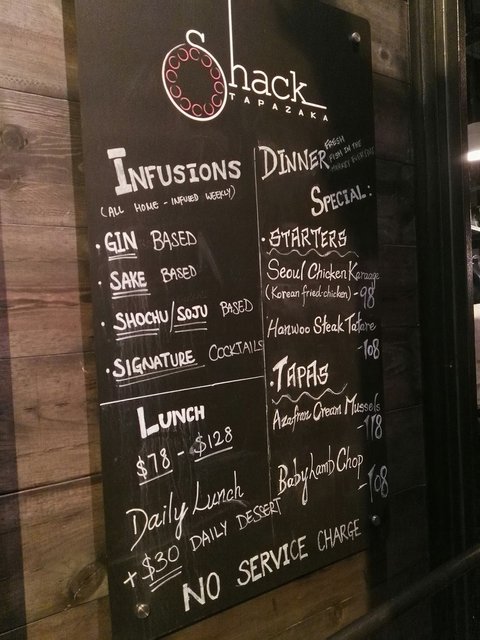 Shack
TAPAZAKA
INFUSIONS
(ALL HOME - INFUSED WEEKLY)
• GIN BASED
• SAKE BASED
• SHOCHU/SOJU BASED
• SIGNATURE COCKTAILS
LUNCH
$78 - $128
Daily Lunch
+ $30 DAILY DESSERT
DINNER
FRESH
FISH IN THE
MARKET EVERYDAY
SPECIAL:
• STARTERS
Seoul Chicken Karaage
(Korean fried-chicken) - 98
Hanwoo Steak Tatare
- 108
• TAPAS
Azafran Cream Mussels
- 118
Baby Lamb Chop
- 108
NO SERVICE CHARGE